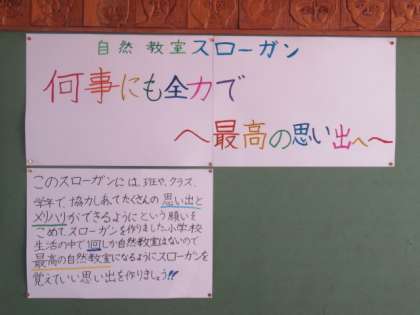 自然教室スローガン
何事にも全力で
〜最高の思い出へ〜
このスローガンには、班や、クラス、
学年で、協力しあってたくさんの思い出と
メリハリができるようにという願いを
こめて、スローガンを作りました。小学校
生活の中で1回しか自然教室はないので
最高の自然教室になるようにスローガンを
覚えていい思い出を作りましょう!!